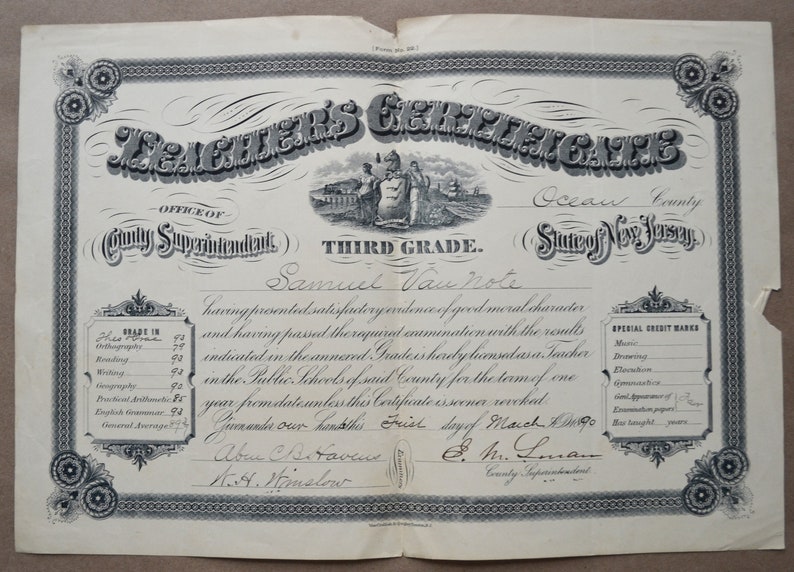 [Form No. 22.]
TEACHER'S CERTIFICATE
Ocean County
OFFICE OF
County Superintendent.
THIRD GRADE.
State of New Jersey.
Samuel Van Note
having presented satisfactory evidence of good moral character
and having passed the required examination with the results
indicated in the annexed Grade, is hereby licensed as a Teacher
in the Public Schools of said County for the term of one
year from date unless this Certificate is sooner revoked.
Given under our hands this First day of March A.D. 1890
GRADE IN
93
Orthography 79
Reading 93
Writing 93
Geography 90
Practical Arithmetic 85
English Grammar 93
General Average
SPECIAL CREDIT MARKS
Music
Drawing
Elocution
Gymnastics
Genl. Appearance of
Examination papers
Has taught years
Abm C B Havens
W. H. Winslow
Examiners
E. M. Lonan
County Superintendent.